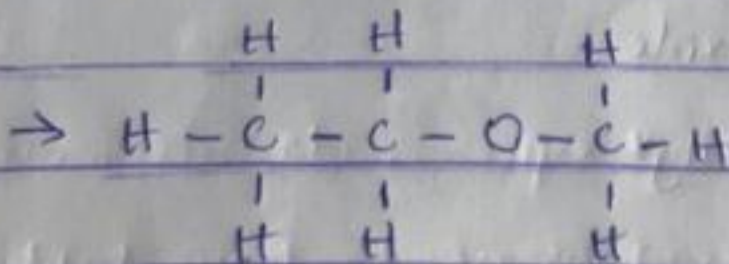 H H H
→ H - C - C - O - C - H
H H H